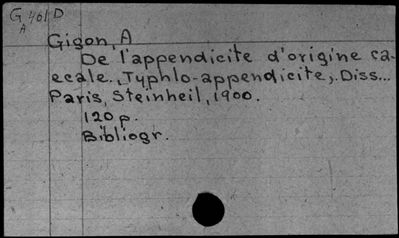 G 401 D
A
Gigon, A
De l'appendicite d'origine ca-
ecale., Typhlo-appendicite,. Diss...
Paris, Steinheil, 1900.
120 p.
Bibliogr.